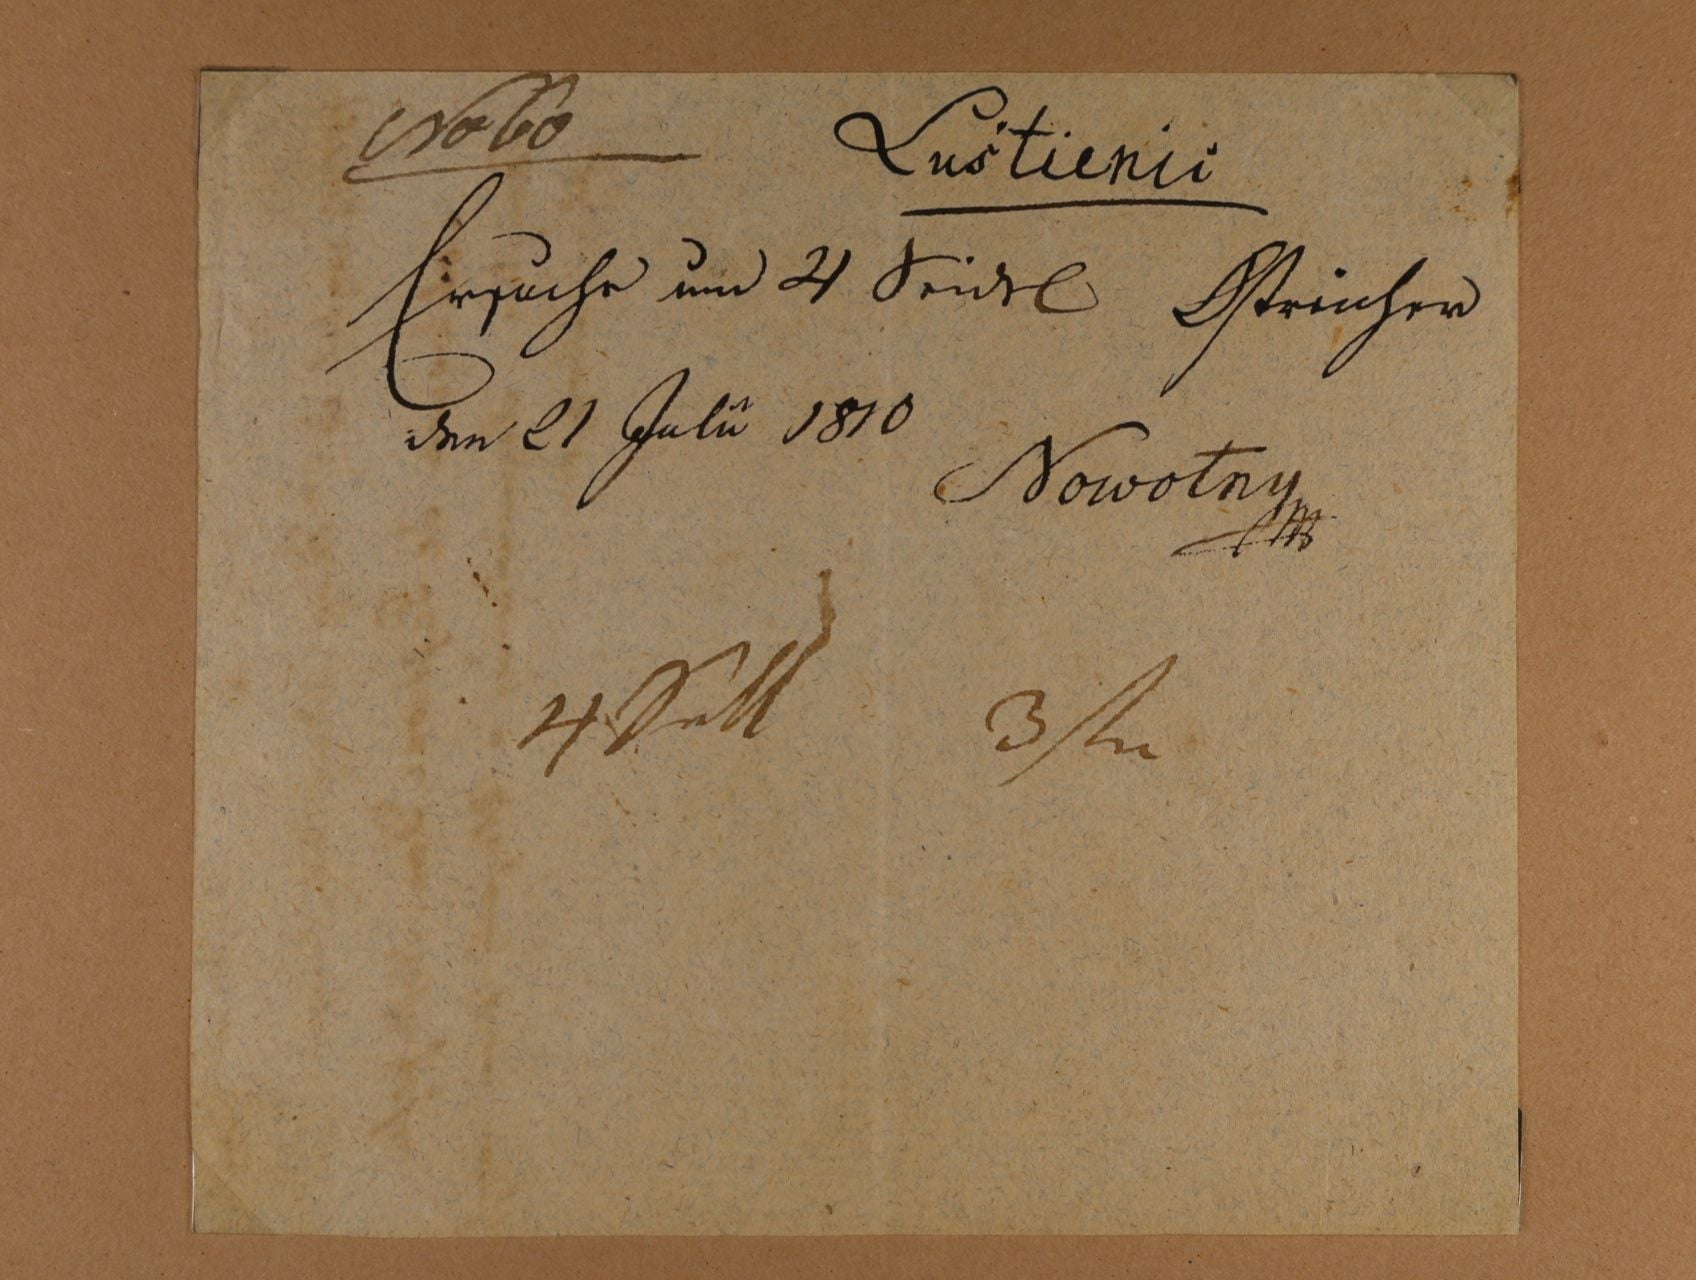 No 60
Luštienii
Ersuche um 4 Seidel Östreicher
den 21 Julii 1810
Nowotny
4 3